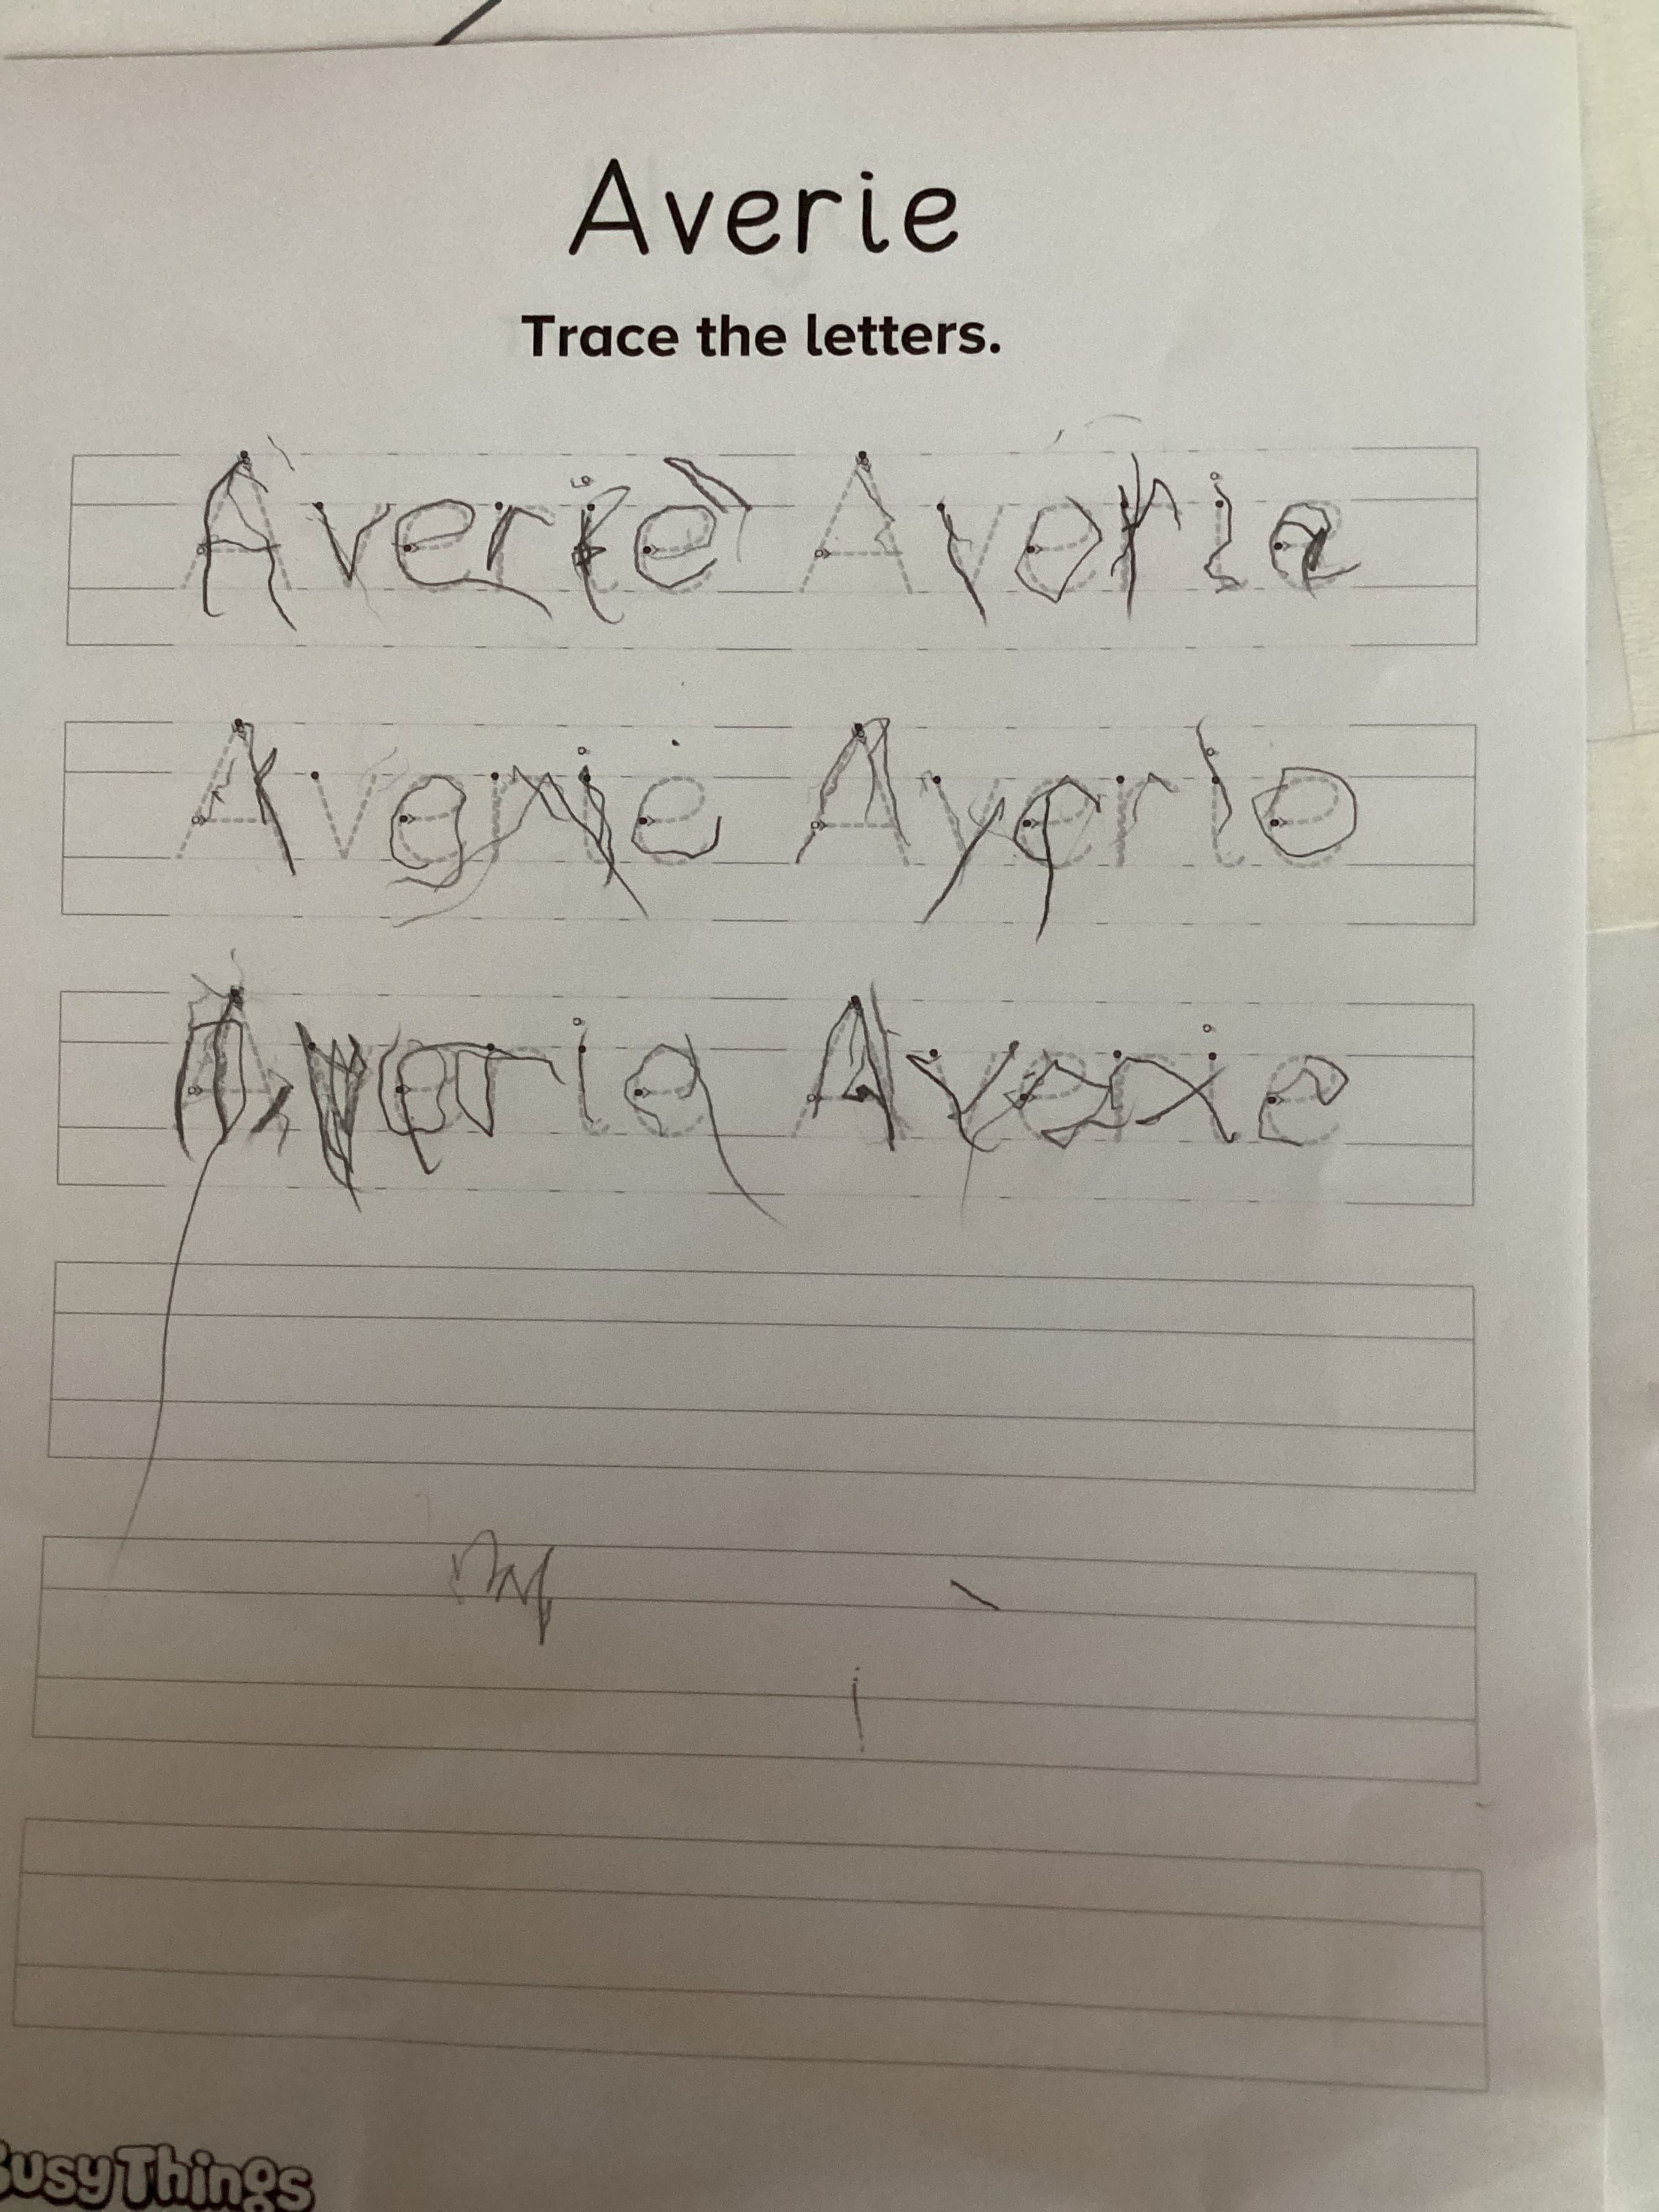 Averie
Trace the letters.
Averie Averie
Averie Averie
Averie Averie
BusyThings